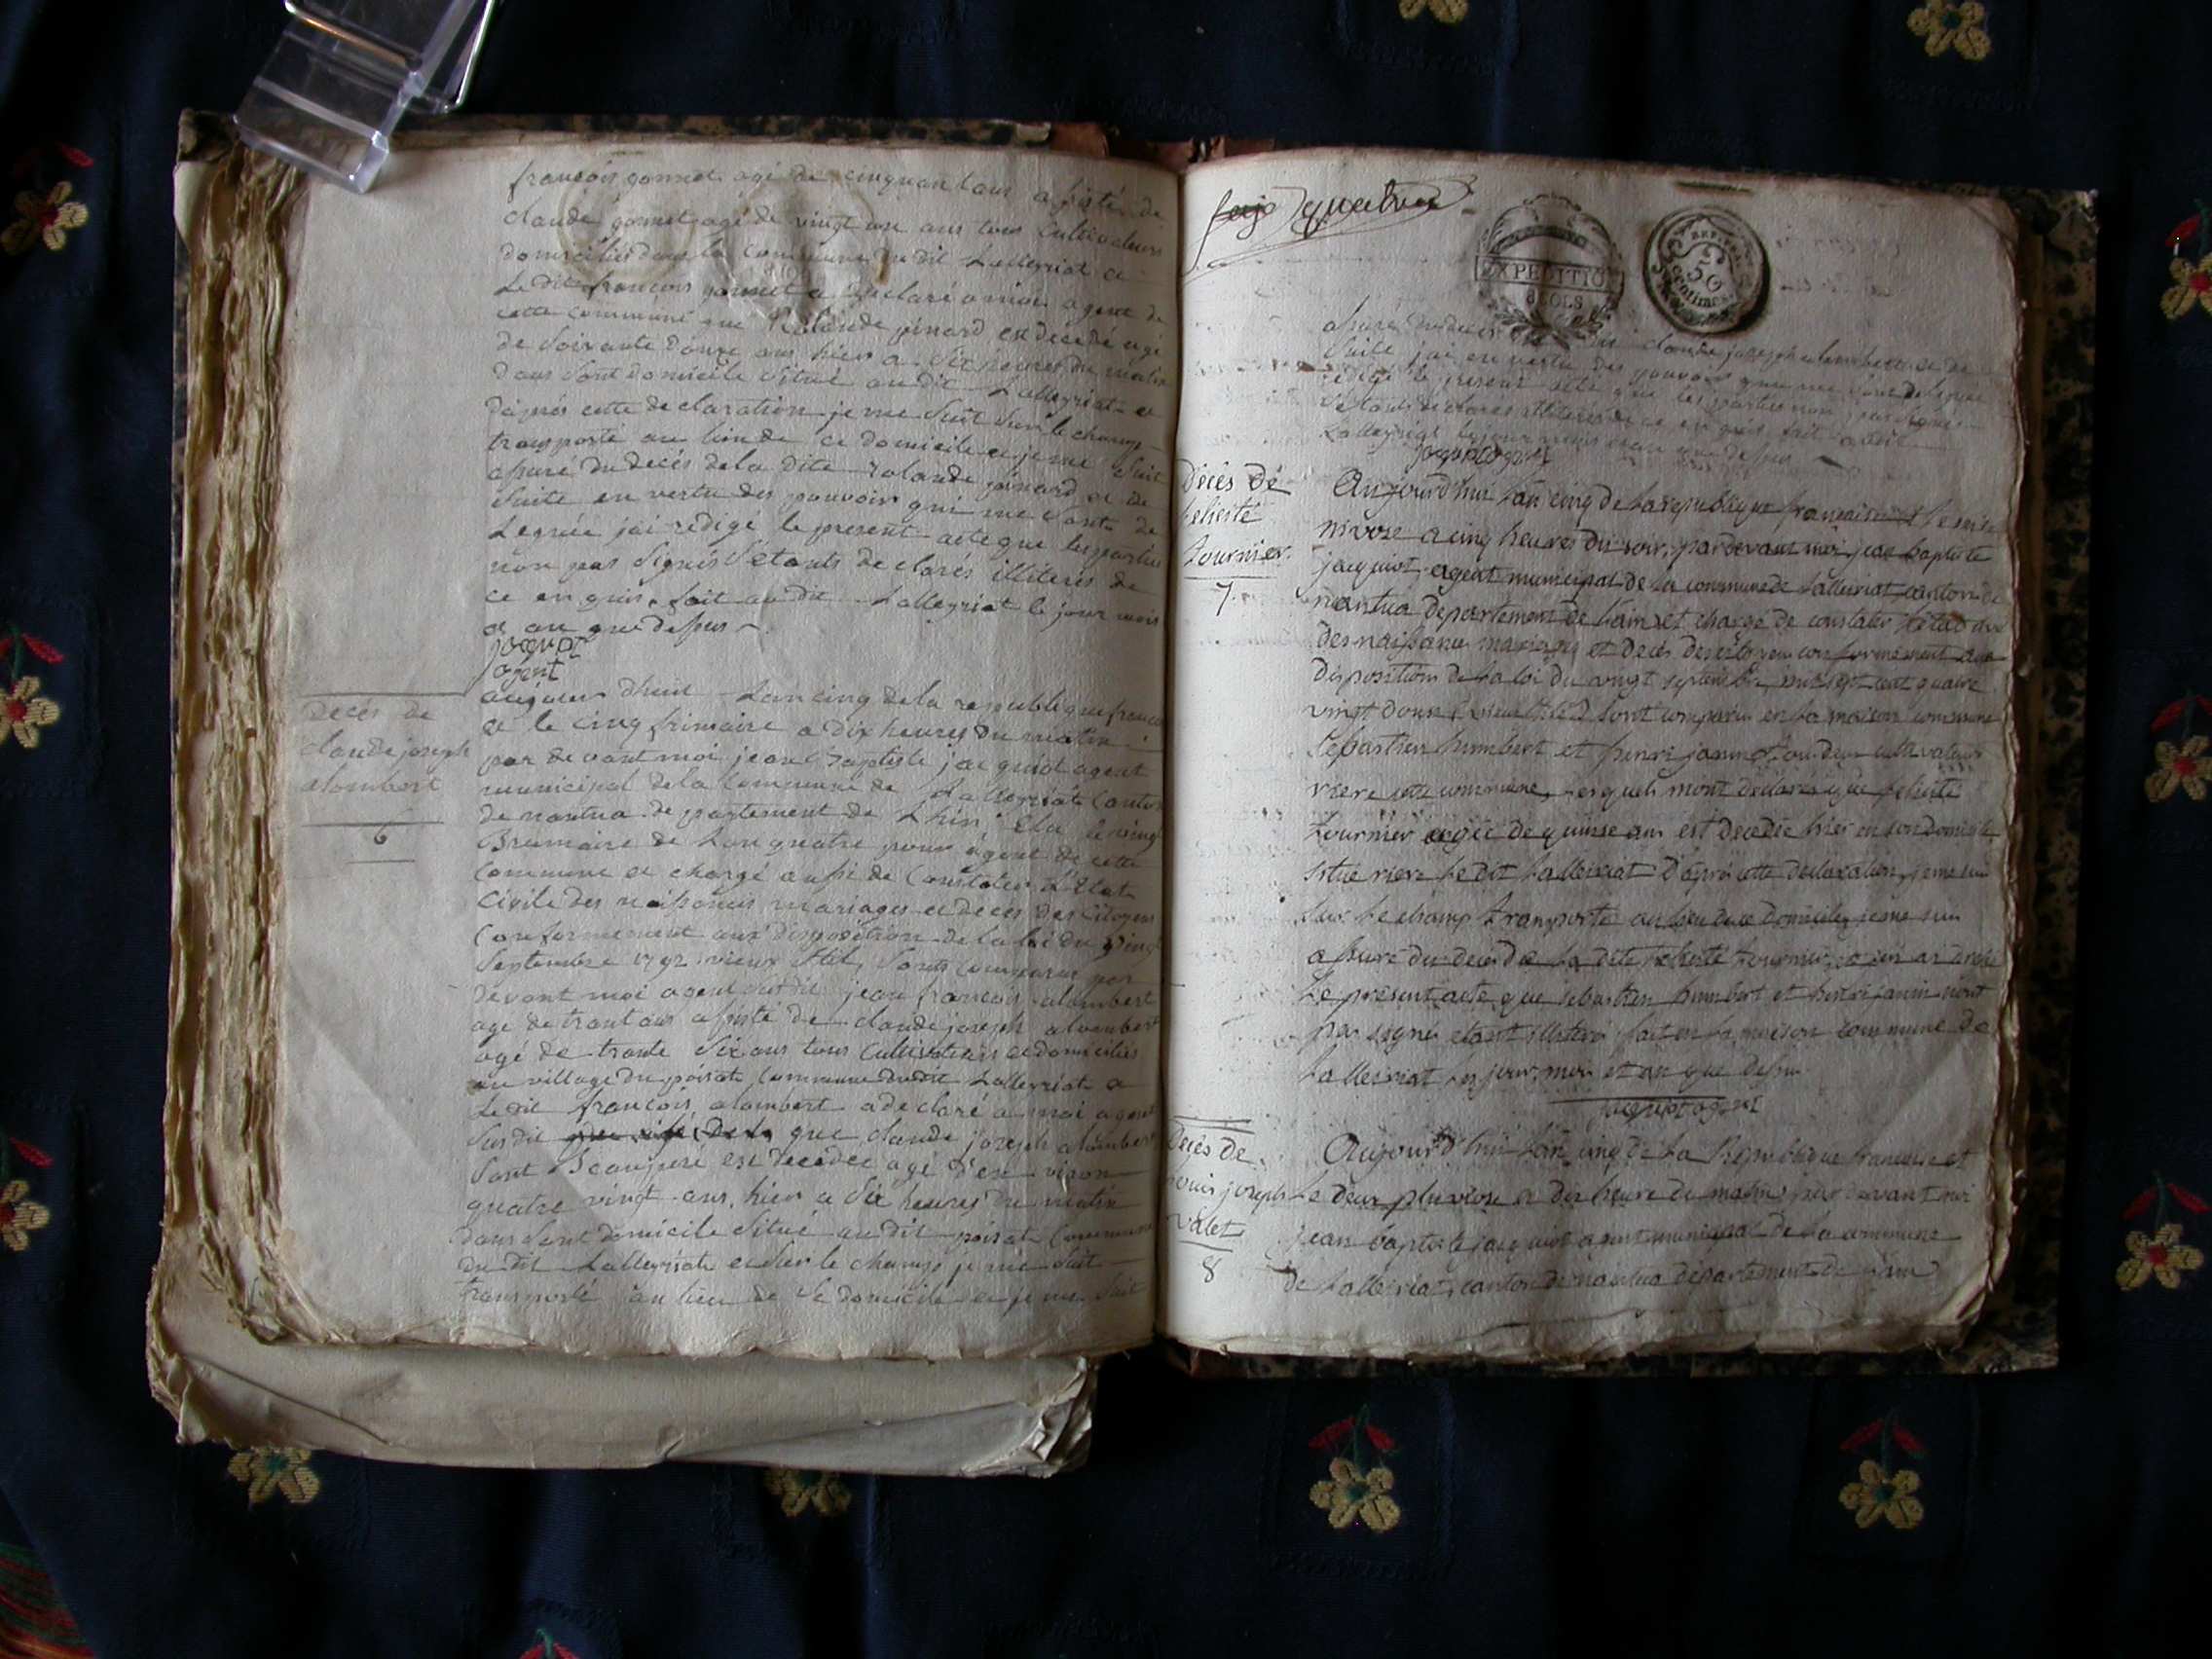 françois gonnet agé de cinquant ans assisté de
claude gonnet agé de vingt un ans tous cultivateurs
domiciliés dans la commune du dit Lalleyriat et
Le dit françois gonnet a declaré a moi agent de
cette commune que Rolande pinard est decedé agé
de soixante douze ans hier a six heures du matin
dans sont domicile situé au dit Lalleyriat et
d'aprés cette declaration je me suit sur le champ
transporté au lieu de ce domicile et je me suit
assuré du decés de la dite rolande pinard et de
suite en vertu des pouvoir qui me sont de
Legués jai redigé le present acte que les parties
non pas signés s'etants declarés illiterés de
ce en quis. fait au dit Lalleyriat le jour mois
et an que dessus
jaquiot
agent
Decés de
claude joseph
alombert
6
aujour d'huit Lan cinq de la republique francoi
et le cinq frimaire a dix heures du matin
par devant moi jean Baptiste jacquiot agent
municipal de la commune de Lalleyriat canton
de nantua departement de Lhin, Elu le vingt
Brumaire de Lan quatre pour agent de cette
commune et chargé aussi de constater L'Etat
Civile des naissances mariages et deces des Citoyens
Conformement aux disposition de la loi du vingt
Septembre 1792 vieux stil, sonts comparus par
devant moi agent susdit jean francois alombert
agé de trant ans assisté de claude joseph alombert
agé de trante six ans tous cultivateurs et domiciliés
au village du poisat commune du dit Lalleyriat et
Le dit francois alombert a declaré a moi agent
susdit que claude joseph alombert
sont Beaupere est decedee agé d'en viron
quatre vingt ans. hier a six heures du matin
dans sont domicile situé au dit poisat commune
du dit Lalleyriat et sur le champ je me suit
transporté au lieu de se domicile et je me suit
EXPEDITIO
8 SOLS
50
centimes
assuré du deces dit claude joseph alombert et de
suite jai en vertu des pouvoir que me sont delegués
redigé le present acte que les parties non pas signé
s'etants declarés illiterés de ce en quis fait au dit
Lalleyriat le jour mois et an que dessus
jaquiot agent
Décès de
felicité
tournier
7
Aujourd'hui L'an cinq de La republique francaise et le
nivose a cinq heures du soir, pardevant moi jean baptiste
jacquiot agent municipal de la commune de Lalleiriat canton de
nantua departement de L'ain et chargé de constater L'état
des naissance mariages et decès des citoyen conformement aux
disposition de La loi du vingt septembre mil sept cent quatre
vingt douse (vieux stile) sont comparu en La maison commune
sebastien humbert et henri janin tou deux cultivateur
riere cette commune, Lesquels m'ont declarés que felicité
tournier agée de quinse ans est decedée hier en son domicile
situé riere Le dit Lalleiriat D'aprés cette declaration, je me suis
sur Le champ transporté au Lieu de ce domicile, je me suis
assuré du decès de La dite felicité tournier, et j'en ai dressé
Le present acte que sebastien humbert et henri janin n'ont
pas signé etant illiteré fait en La maison commune de
Lalleiriat Les jour, mois et an que dessus
jacquiot agent
Decès de
Louis joseph
valet
8
Aujourd'hui L'an cinq de La Republique francaise et
Le deux pluviose a dix heure du matin pardevant moi
jean baptiste jacquiot agent municipal de La commune
de Lalleiriat, canton de nantua departement de L'ain